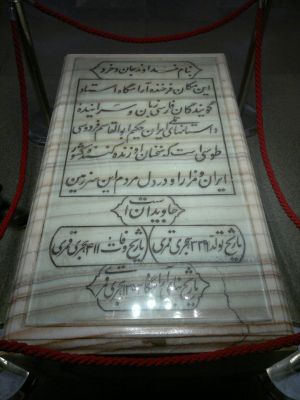 بنام خداوند جان و خرد
این مکان فرخنده آرامگاه استاد
گویندگان فارسی زبان و سراینده
داستانهای ملی ایران حکیم ابوالقاسم فردوسی
طوسی است که سخنان او زنده کننده کشور
ایران و مزار او در دل مردم این سرزمین
جاویدان است
تاریخ تولد هجری قمری تاریخ وفات ۴۱۱ هجری قمری
تاریخ بنای آرامگاه هجری قمری